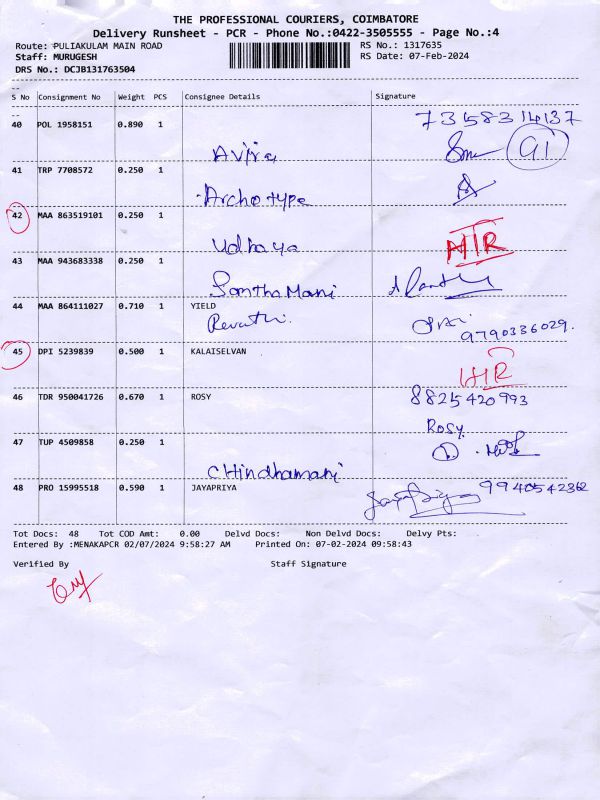 THE PROFESSIONAL COURIERS, COIMBATORE
Delivery Runsheet - PCR - Phone No.:0422-3505555 - Page No.:4
Route: PULIAKULAM MAIN ROAD RS No.: 1317635
Staff: MURUGESH RS Date: 07-Feb-2024
DRS No.: DCJB131763504
--
S No Consignment No Weight PCS Consignee Details Signature
--
7358314137
40 POL 1958151 0.890 1
Avira 91
41 TRP 7708572 0.250 1
Archotype
42 MAA 863519101 0.250 1
Udhaya
43 MAA 943683338 0.250 1
Santha Mani
44 MAA 864111027 0.710 1 YIELD
Revathi. 9790336029.
45 DPI 5239839 0.500 1 KALAISELVAN
46 TDR 950041726 0.670 1 ROSY 8825420993
Rosy
47 TUP 4509858 0.250 1
CHindhamani
48 PRO 15995518 0.590 1 JAYAPRIYA 9940542362
Tot Docs: 48 Tot COD Amt: 0.00 Delvd Docs: Non Delvd Docs: Delvy Pts:
Entered By :MENAKAPCR 02/07/2024 9:58:27 AM Printed On: 07-02-2024 09:58:43
Verified By Staff Signature